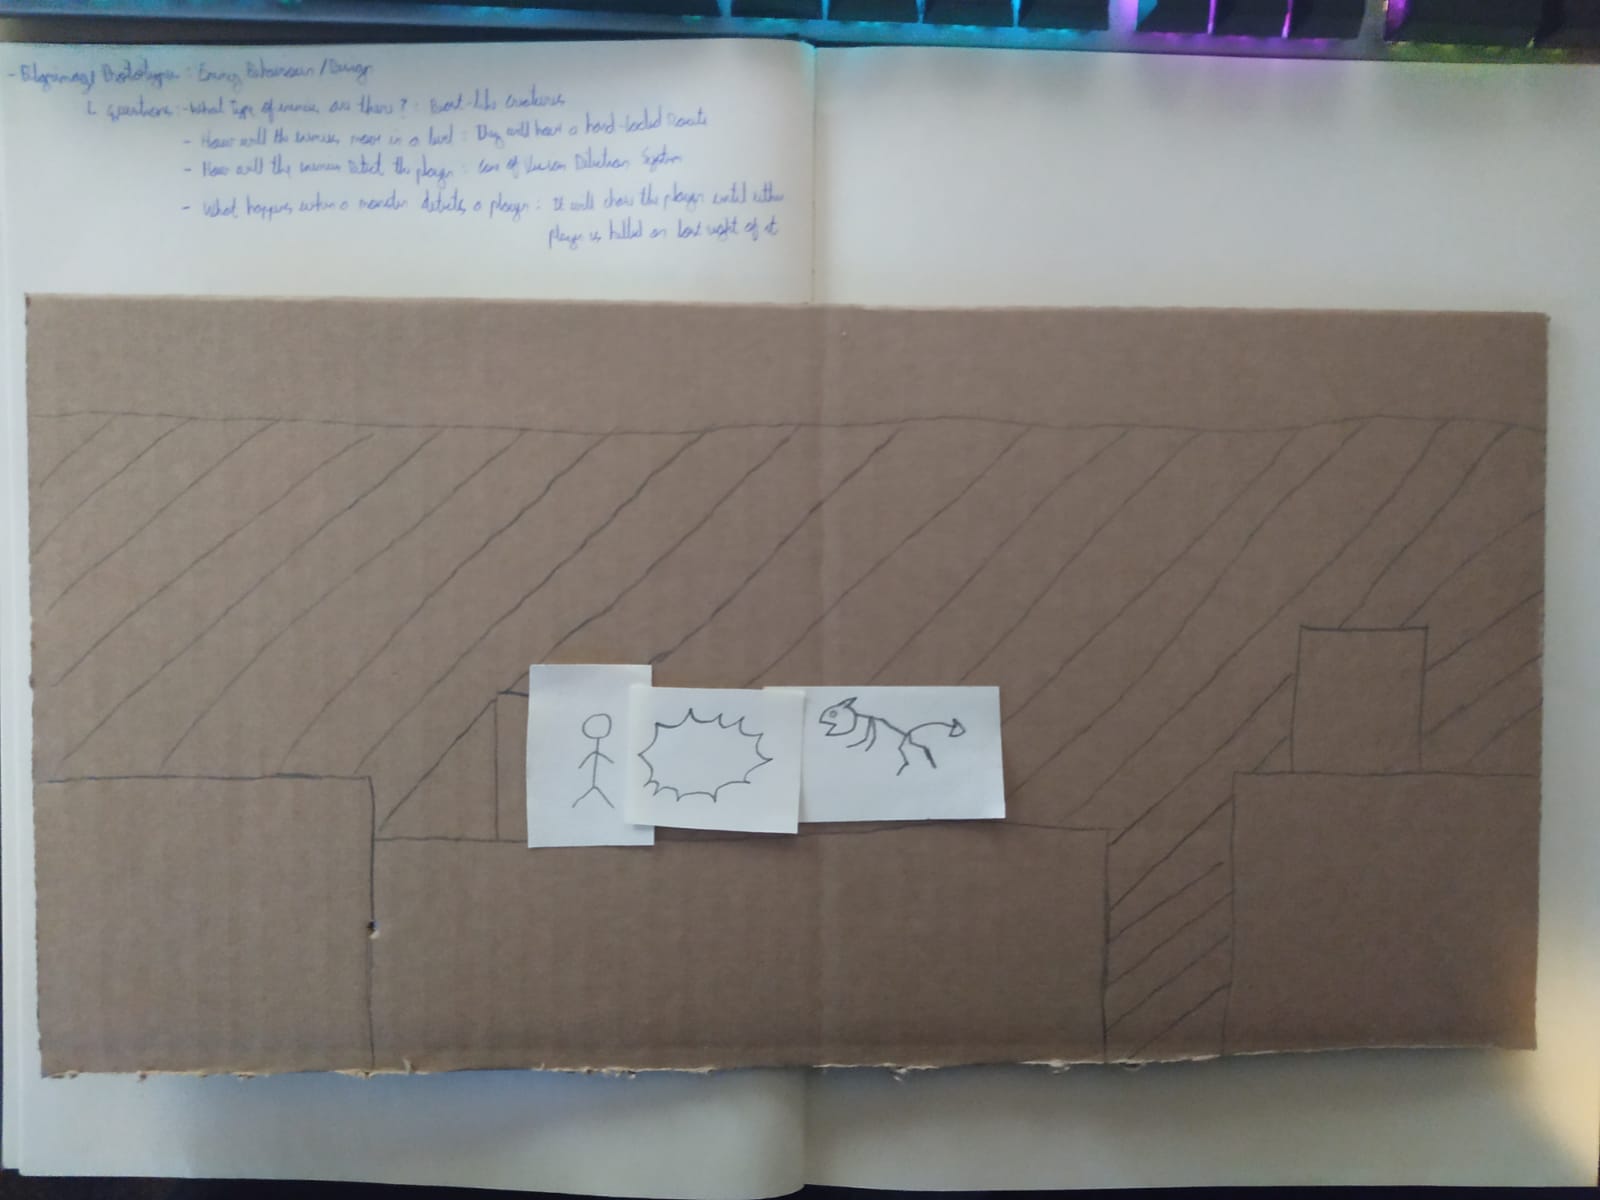 - Pilgrimage Prototype : Enemy Behaviour / Design
L Questions : - What Type of enemies are there? : Beast-like Creatures
- How will the enemies move in a level : They will have a hard-locked Route
- How will the enemies Detect the player : Cone of Vision Detection System
- What happens when a monster detects a player : It will chase the player until either
player is killed or lost sight of it